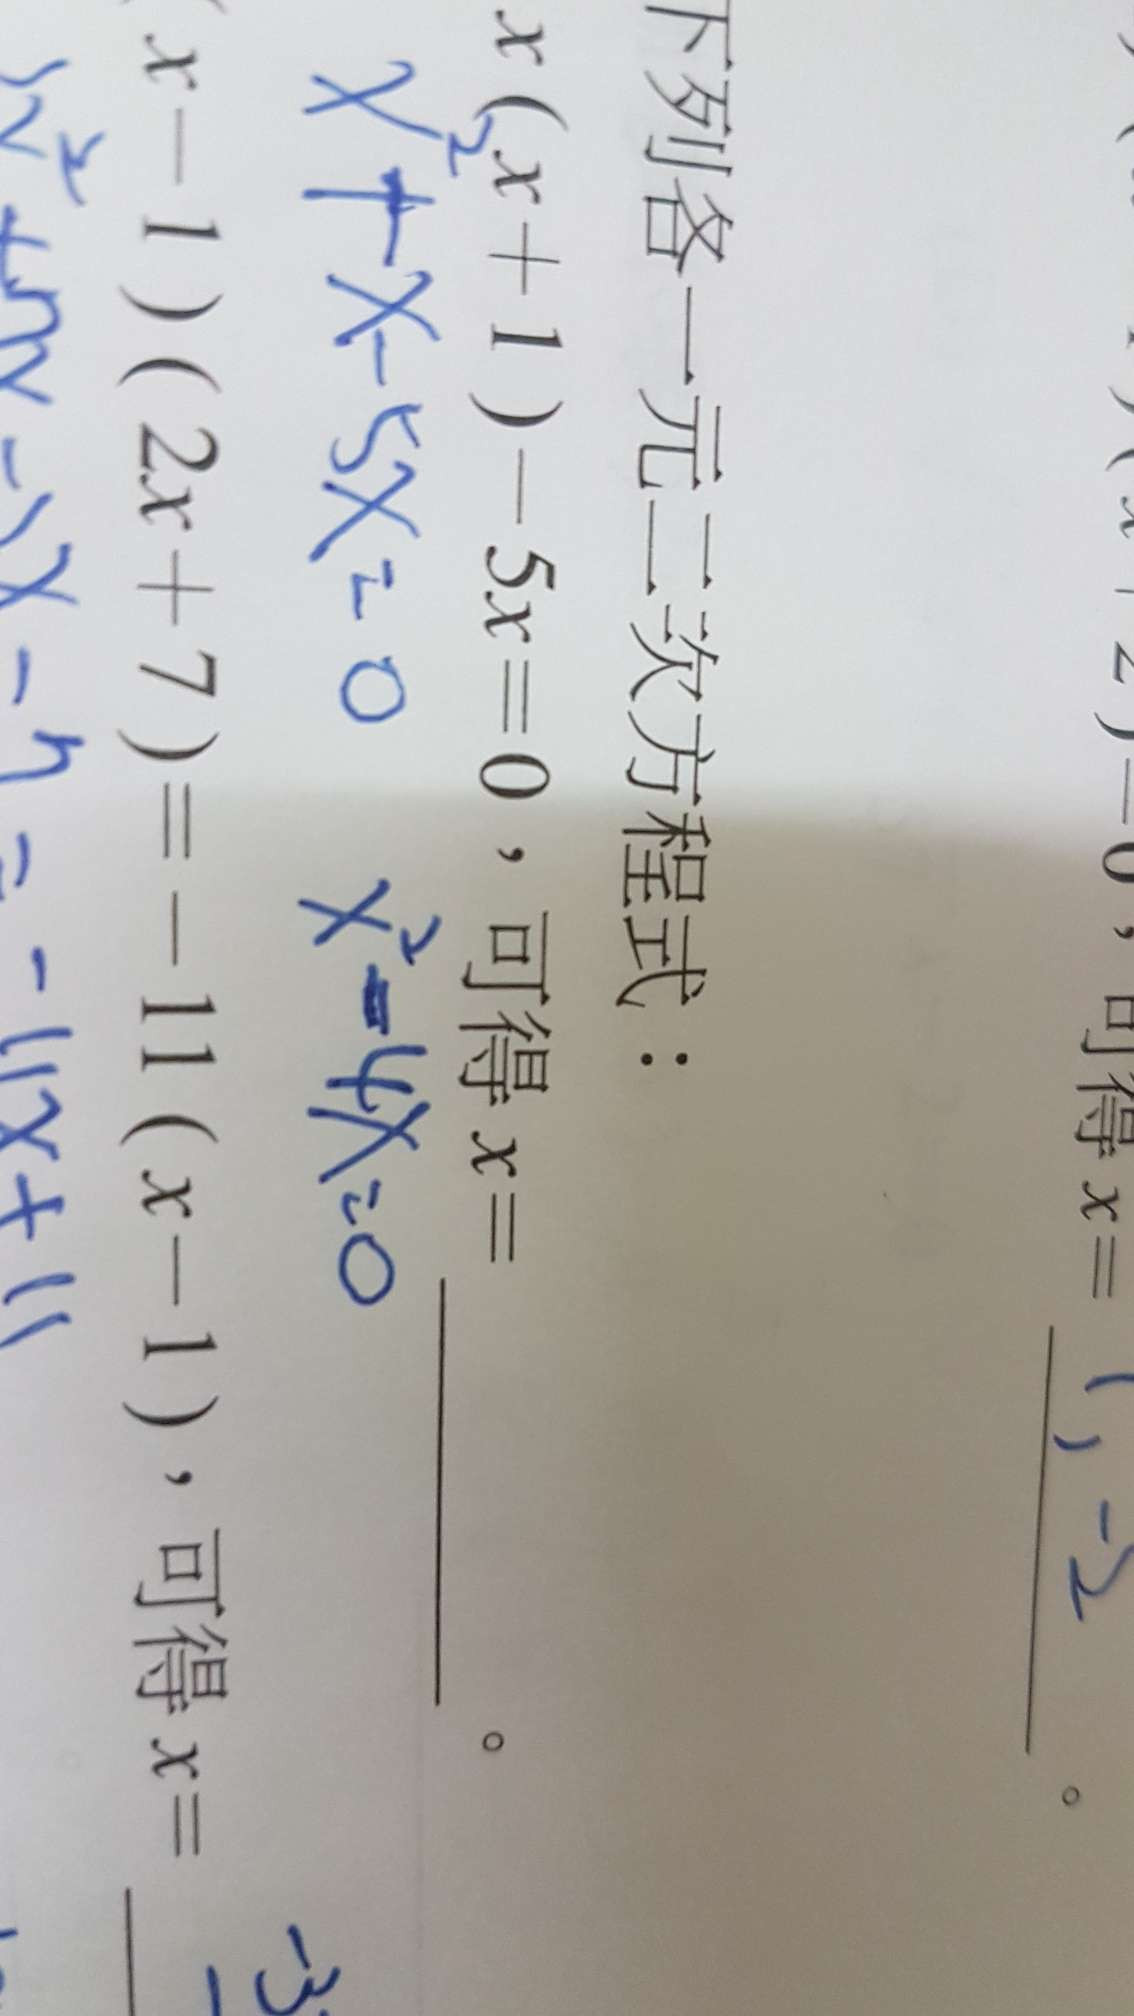 )=0，可得x= 1, -2 。
下列各一元二次方程式：
x(x+1)-5x=0，可得x= 。
x²+x-5x=0 x²-4x=0
(x-1)(2x+7)=-11(x-1)，可得x=
-11x+11